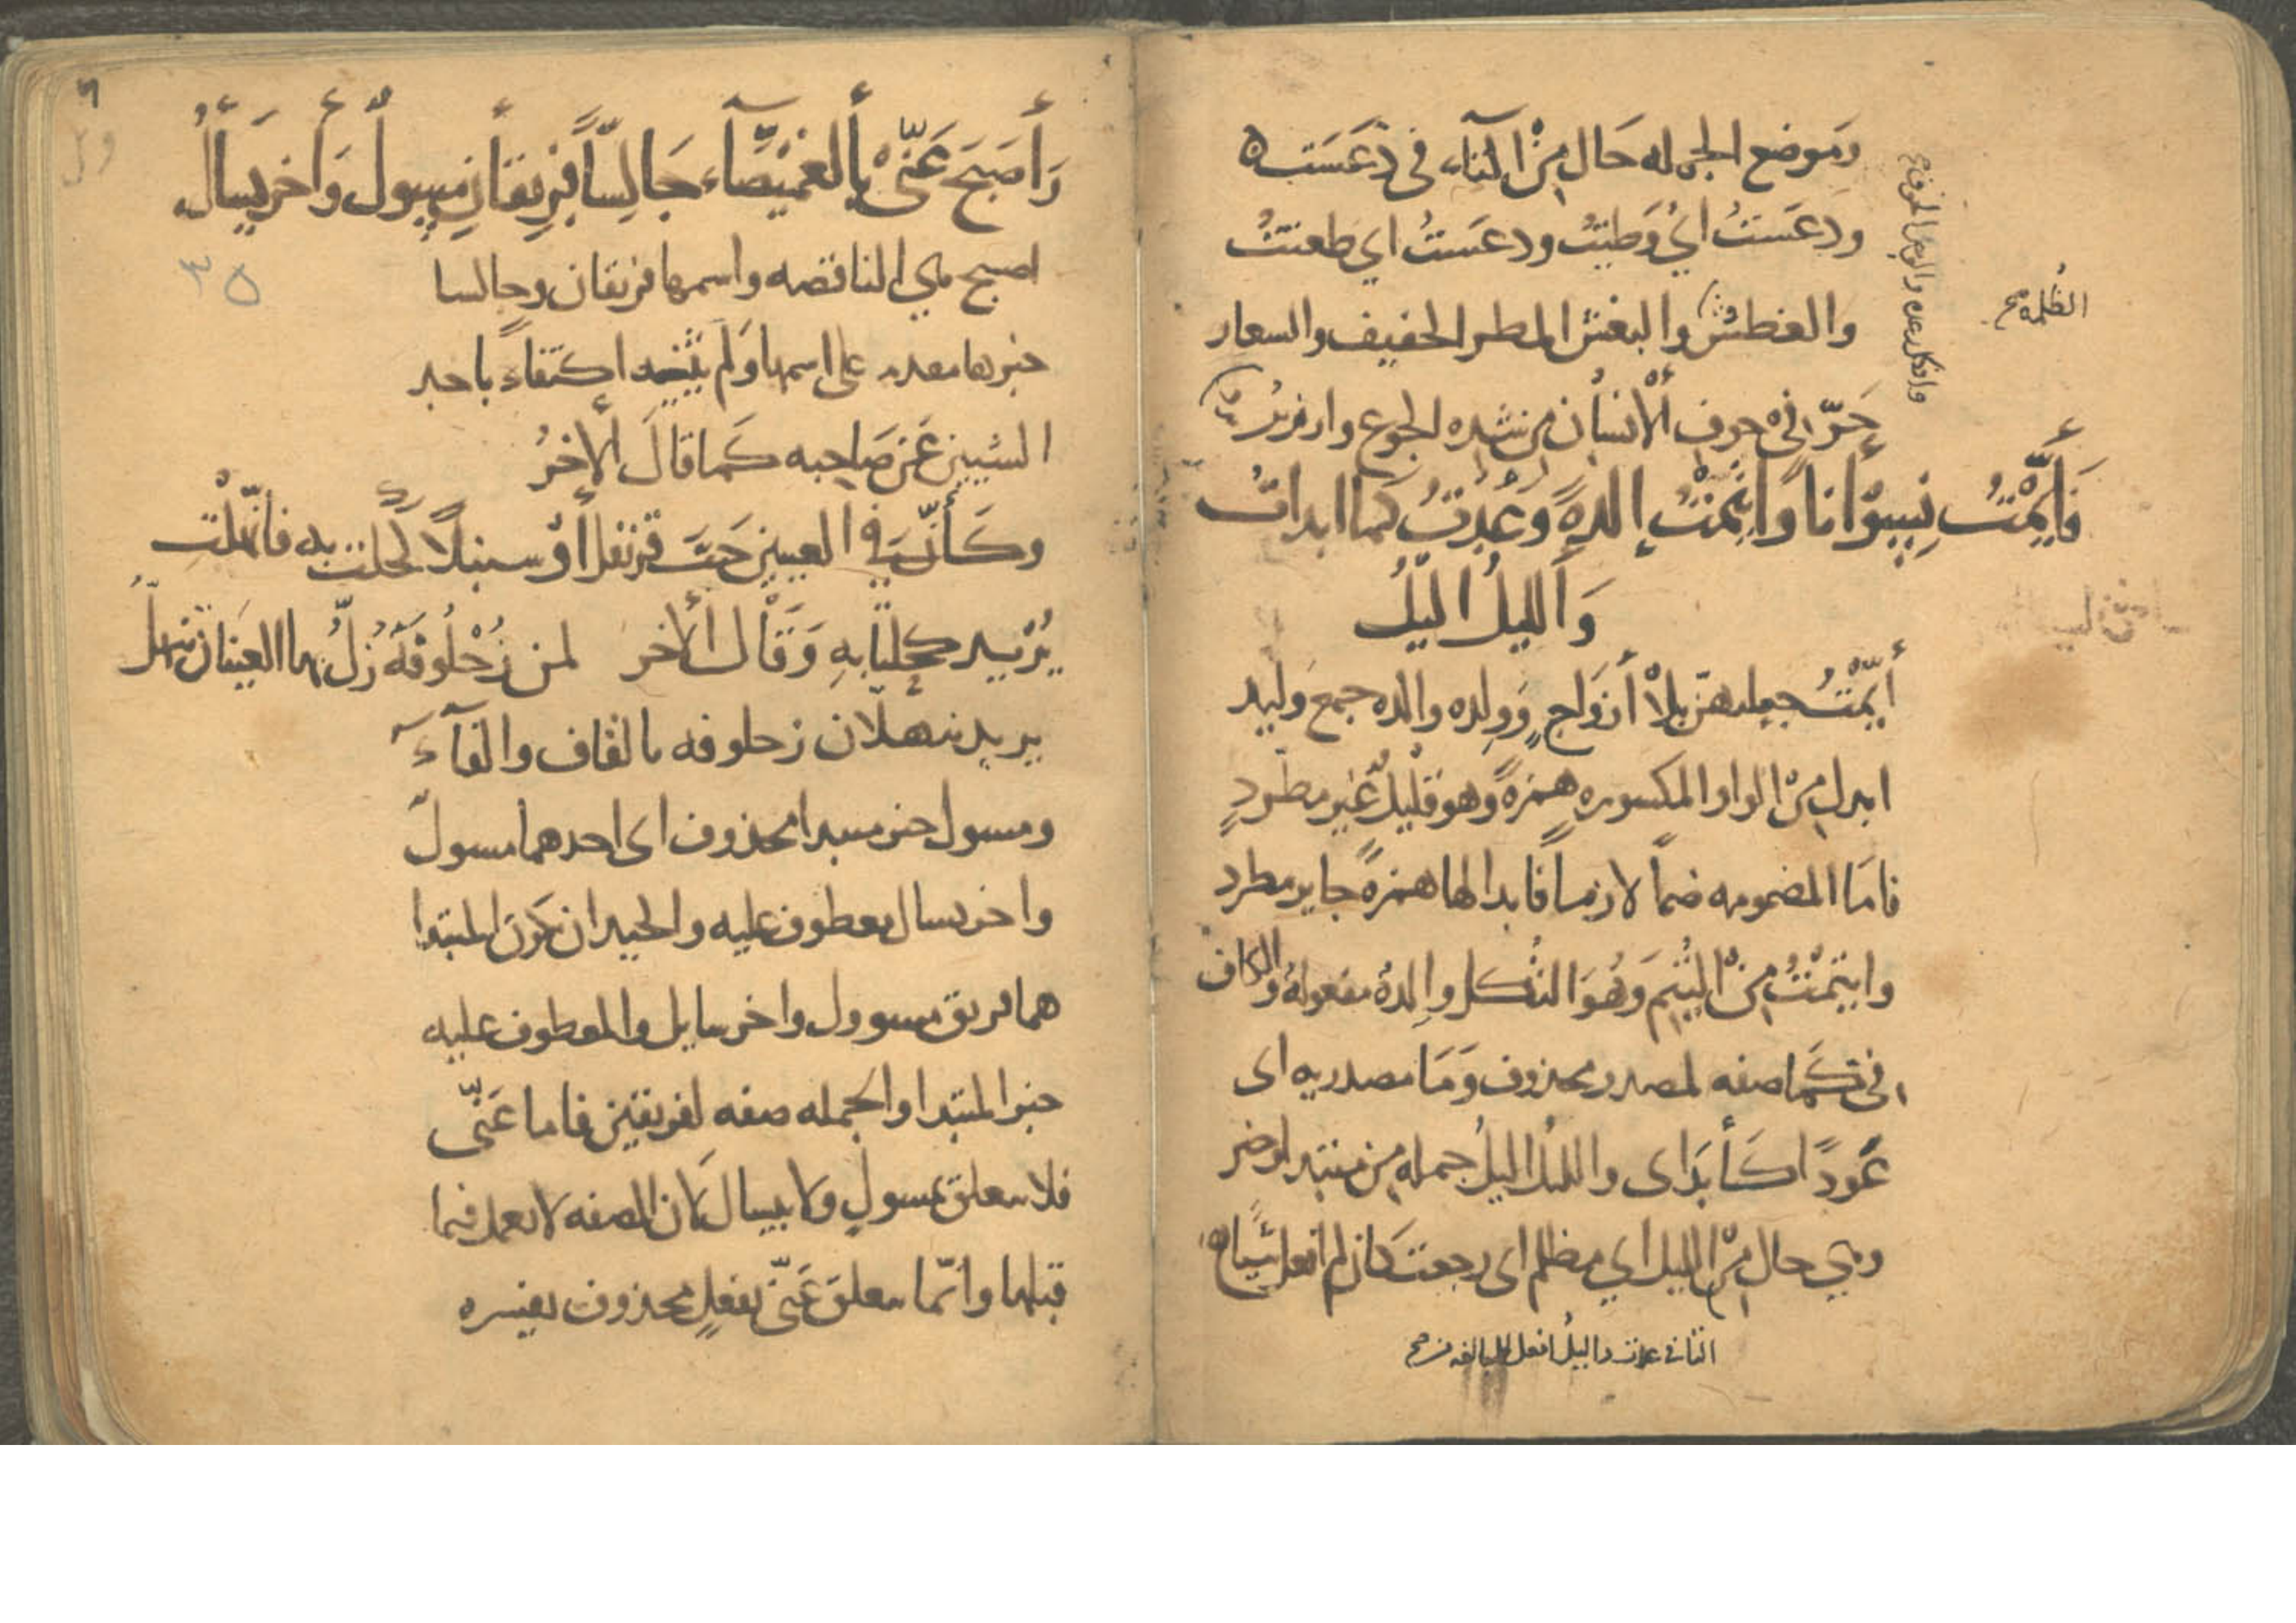 وَمَوضع الجمله حَال مِنْ التآء في دَعَسَتْ
ودعَسَتُ اي وَطيتُ ودعَسَتُ اي طعنتُ
والغطش والبغش المطر الخفيف والسعار
الظلمة صح
حَرّ في جوف الأنسان من شده الجوع وارزيز
والافكل رعده والوجر الخوف صح
فَأيَّمْتُ نِسِوْاناً وَايتَمْتُ إلدةً وَعُدْتُ كما ابدات
وَالليلُ اليَلُ
أيّمْتُ جعلتهنّ بلا أزوَاج وَولده والده جمع وَليد
ابدل مِنْ الواو المكسوره همزةً وهو قليلٌ غير مطّردٍ
فامَا المضمومه ضماً لازماً فابدالها همزةً جايز مطرد
وايتمْتُ مِنْ اليُتِم وَهُوَ الثكل وإلدةً مفعوله والكاف
في كَما صفه لمصدر محذوف وَمَا مصدريه اى
عَودًا كَأبدَاى والليل اليلُ جمله من مبتدا وخبر
وهي حال مِنْ الليل اي مظلم اى رجعت كان لم افعل شيًا
التاء في عدت واليلُ افعل للمبالغه صح
وَأصَبَحَ عَنّىْ بِألغمَيْصَآء جَالِسًا فَرِيقَانِ مسِوُلٌ وَأخر يسَألُ
٣٥
اصبح هي الناقصه واسمها فريقان وجالسا
خبرها مقدم على اسمها وَلم يثنيه اكتفاءً باحد
الشيين عَن صَاحِبه كَما قالَ ألاخرُ
وكَأنَّ في العينين حَبَّ قرنفل أوْ سنبلاً كحلت به فانهلّتِ
يُرْيد كحلتَا بهِ وَقَال ألاخر لمن زُحْلُوفَة زُلٌّ بها العينان تنهلُّ
يريد تنهلّان زحلوفه بالقاف والفآءَ
ومسول خبر مبتدا محذوف اى احدهما مسول
واخر يسال معطوف عليه والجيد ان يكون المبتدا
هما فريق مسوول واخر سايل والمعطوف عليه
خبر المبتدا والجمله صفه لفريقين فاما عَنّى
فلا يتعلق بمسولٍ ولا بيسال لان الصفه لا تعمل فيما
قبلها وانّما يتعلق عَنّى بفعلٍ محذوف يفسره